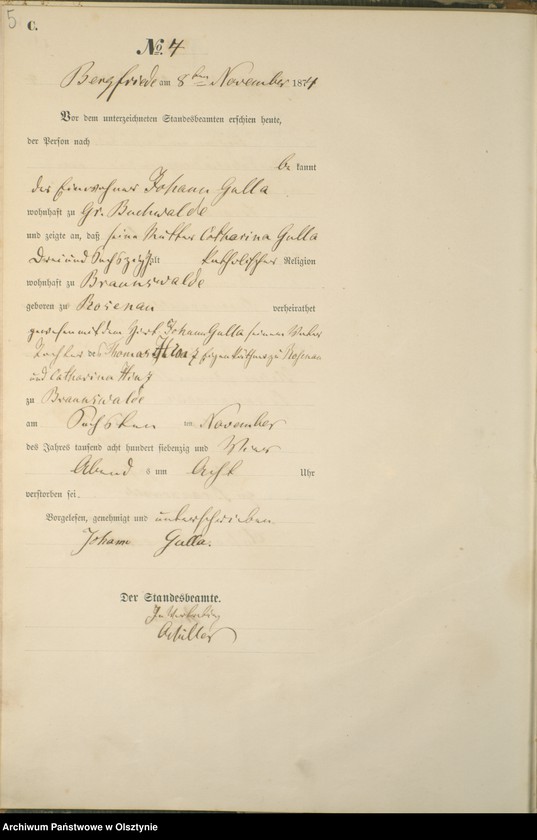 5
C.
No. 4
Bergfriede am 8ten November 1874
Vor dem unterzeichneten Standesbeamten erschien heute,
der Person nach
be kannt
der Einwohner Johann Gulla
wohnhaft zu Gr. Buchwalde
und zeigte an, daß seine Mutter Catharina Gulla
drei und Sechszig alt katholischer Religion
wohnhaft zu Braunswalde
geboren zu Rosenau verheirathet
gewesen mit dem Johann Gulla seinem Vater
Tochter des Thomas Hinz zu Rosenau
und Catharina Hinz
zu Braunswalde
am Sechsten ten November
des Jahres tausend acht hundert siebenzig und Vier
Abend s um Acht Uhr
verstorben sei.
Vorgelesen, genehmigt und unterschrieben
Johann Gulla.
Der Standesbeamte.
In Vertretung
Archiwum Państwowe w Olsztynie